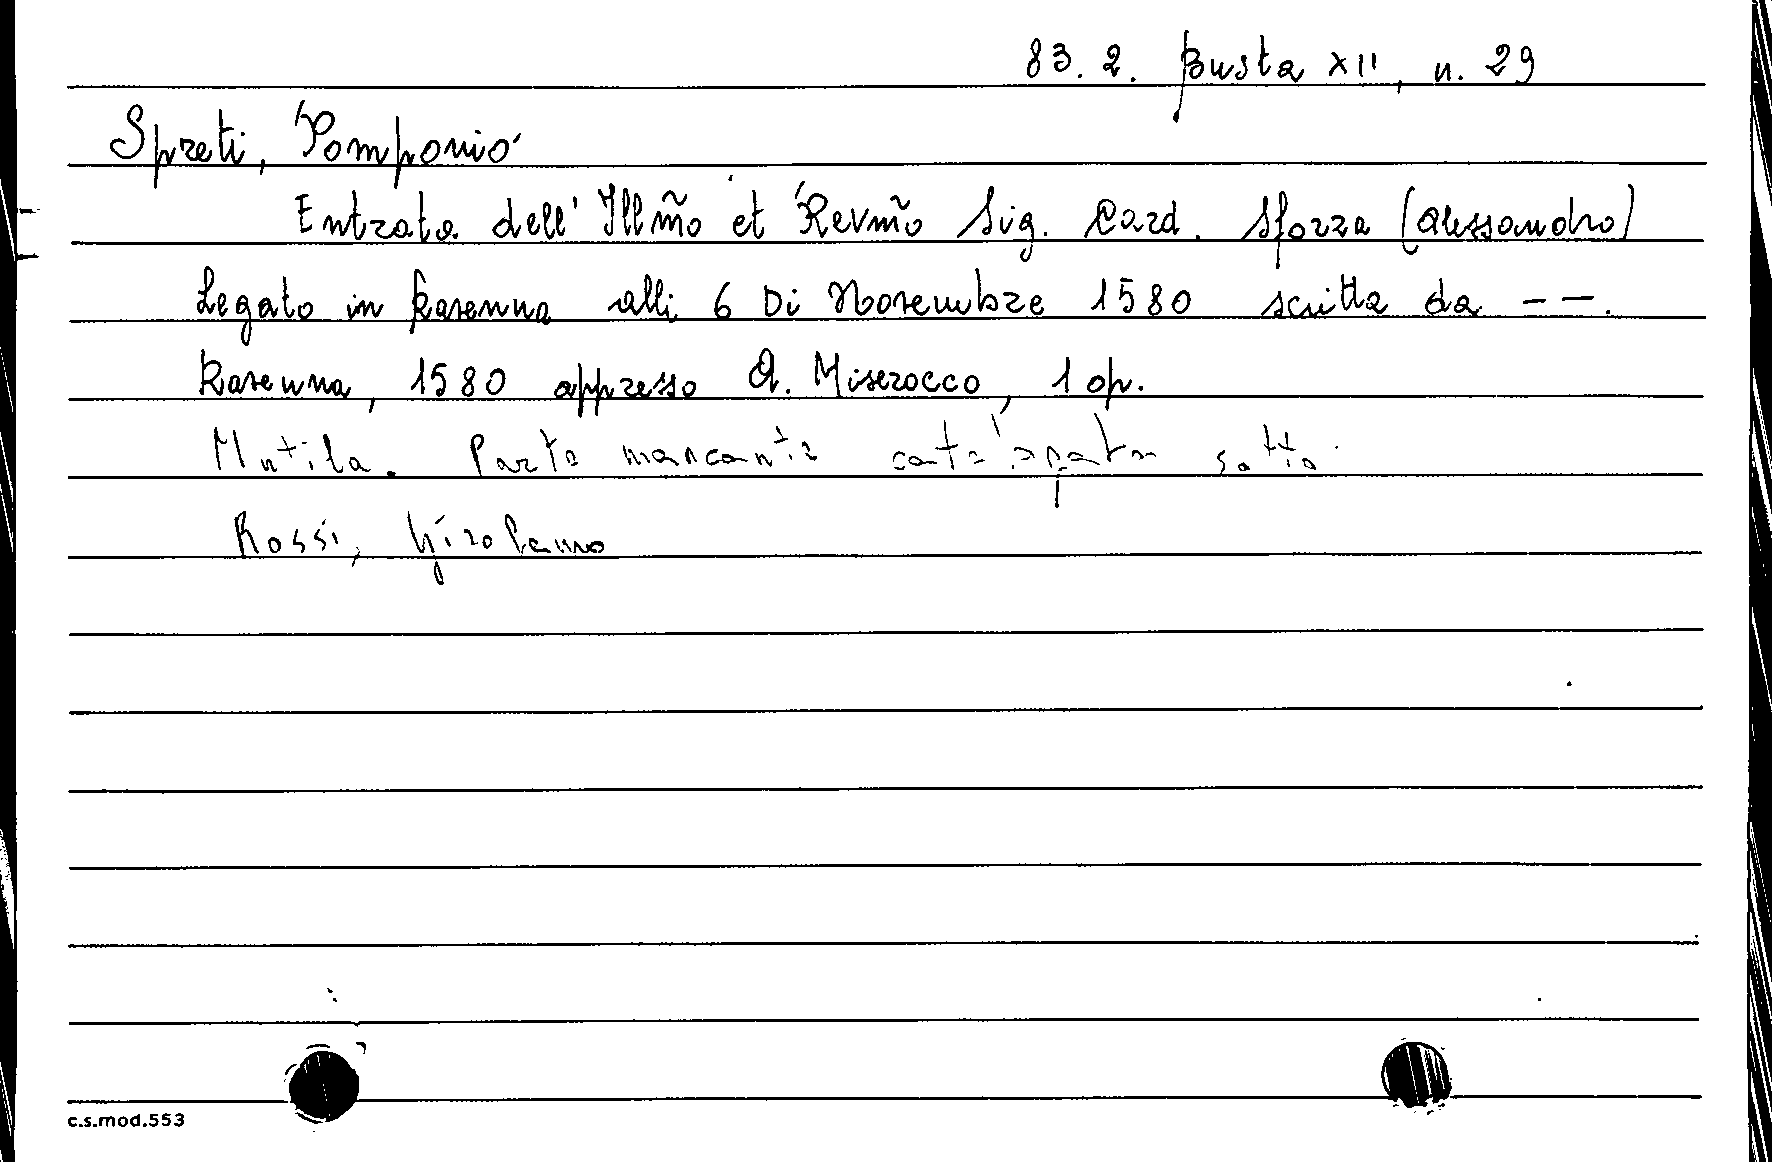 83.2. Busta XII, n. 29
Spreti, Pomponio
Entrata dell' Illm̃o et Revm̃o Sig. Card. Sforza (Alessandro)
Legato in Ravenna alli 6 Di Novembre 1580 scritta da --.
Ravenna, 1580 appresso A. Miserocco, 1 op.
Mutila. Parte mancante sotto
Rossi, Girolamo
c.s.mod.553